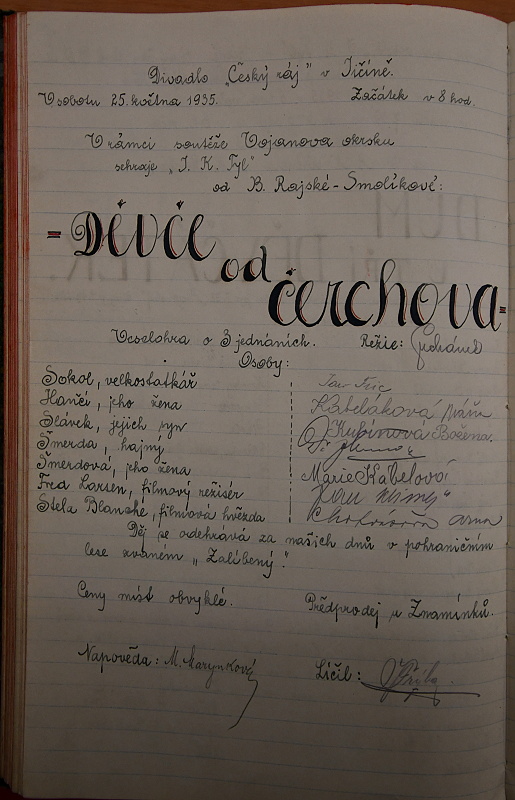 Divadlo „Český ráj" v Jičíně.
V sobotu 25. května 1935. Začátek v 8 hod.
V rámci soutěže Vojanova okrsku
sehraje „J. K. Tyl"
od B. Rajské-Smolíkové:
= Děvče
od
čerchova =
Veselohra o 3 jednáních. Režie:
Osoby:
Sokol, velkostatkář
Hančí, jeho žena Kabeláková
Slávek, jejich syn Kubínová Božena.
Šmerda, hajný
Šmerdová, jeho žena Marie Kabelová
Fred Larsen, filmový režisér Jan
Stela Blanche, filmová hvězda
Děj se odehrává za našich dnů v pohraničním
lese zvaném „Zalíbený".
Ceny míst obvyklé. Předprodej u Znamínků.
Napověda: M. Marynková Líčil: